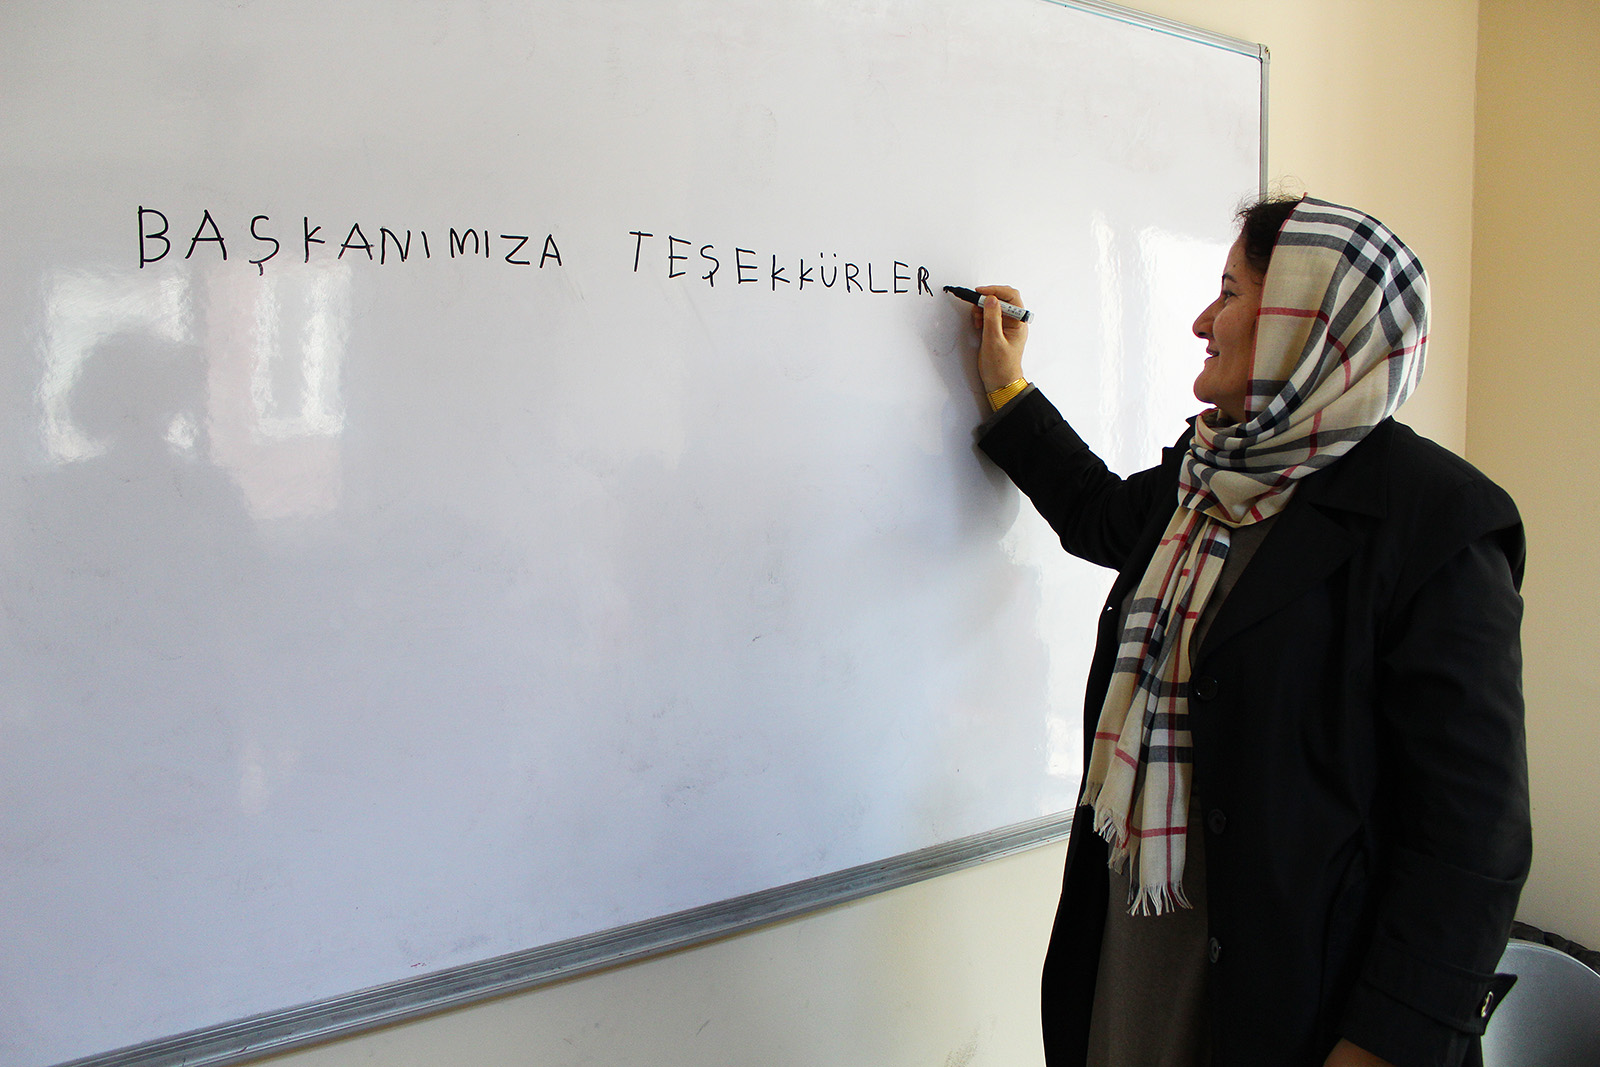 BAŞKANIMIZA TEŞEKKÜRLER.